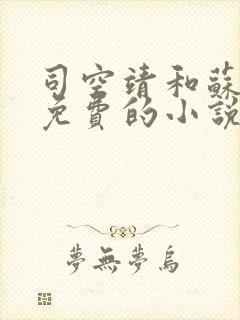 司空靖和蘇
免費的小說
夢無夢烏